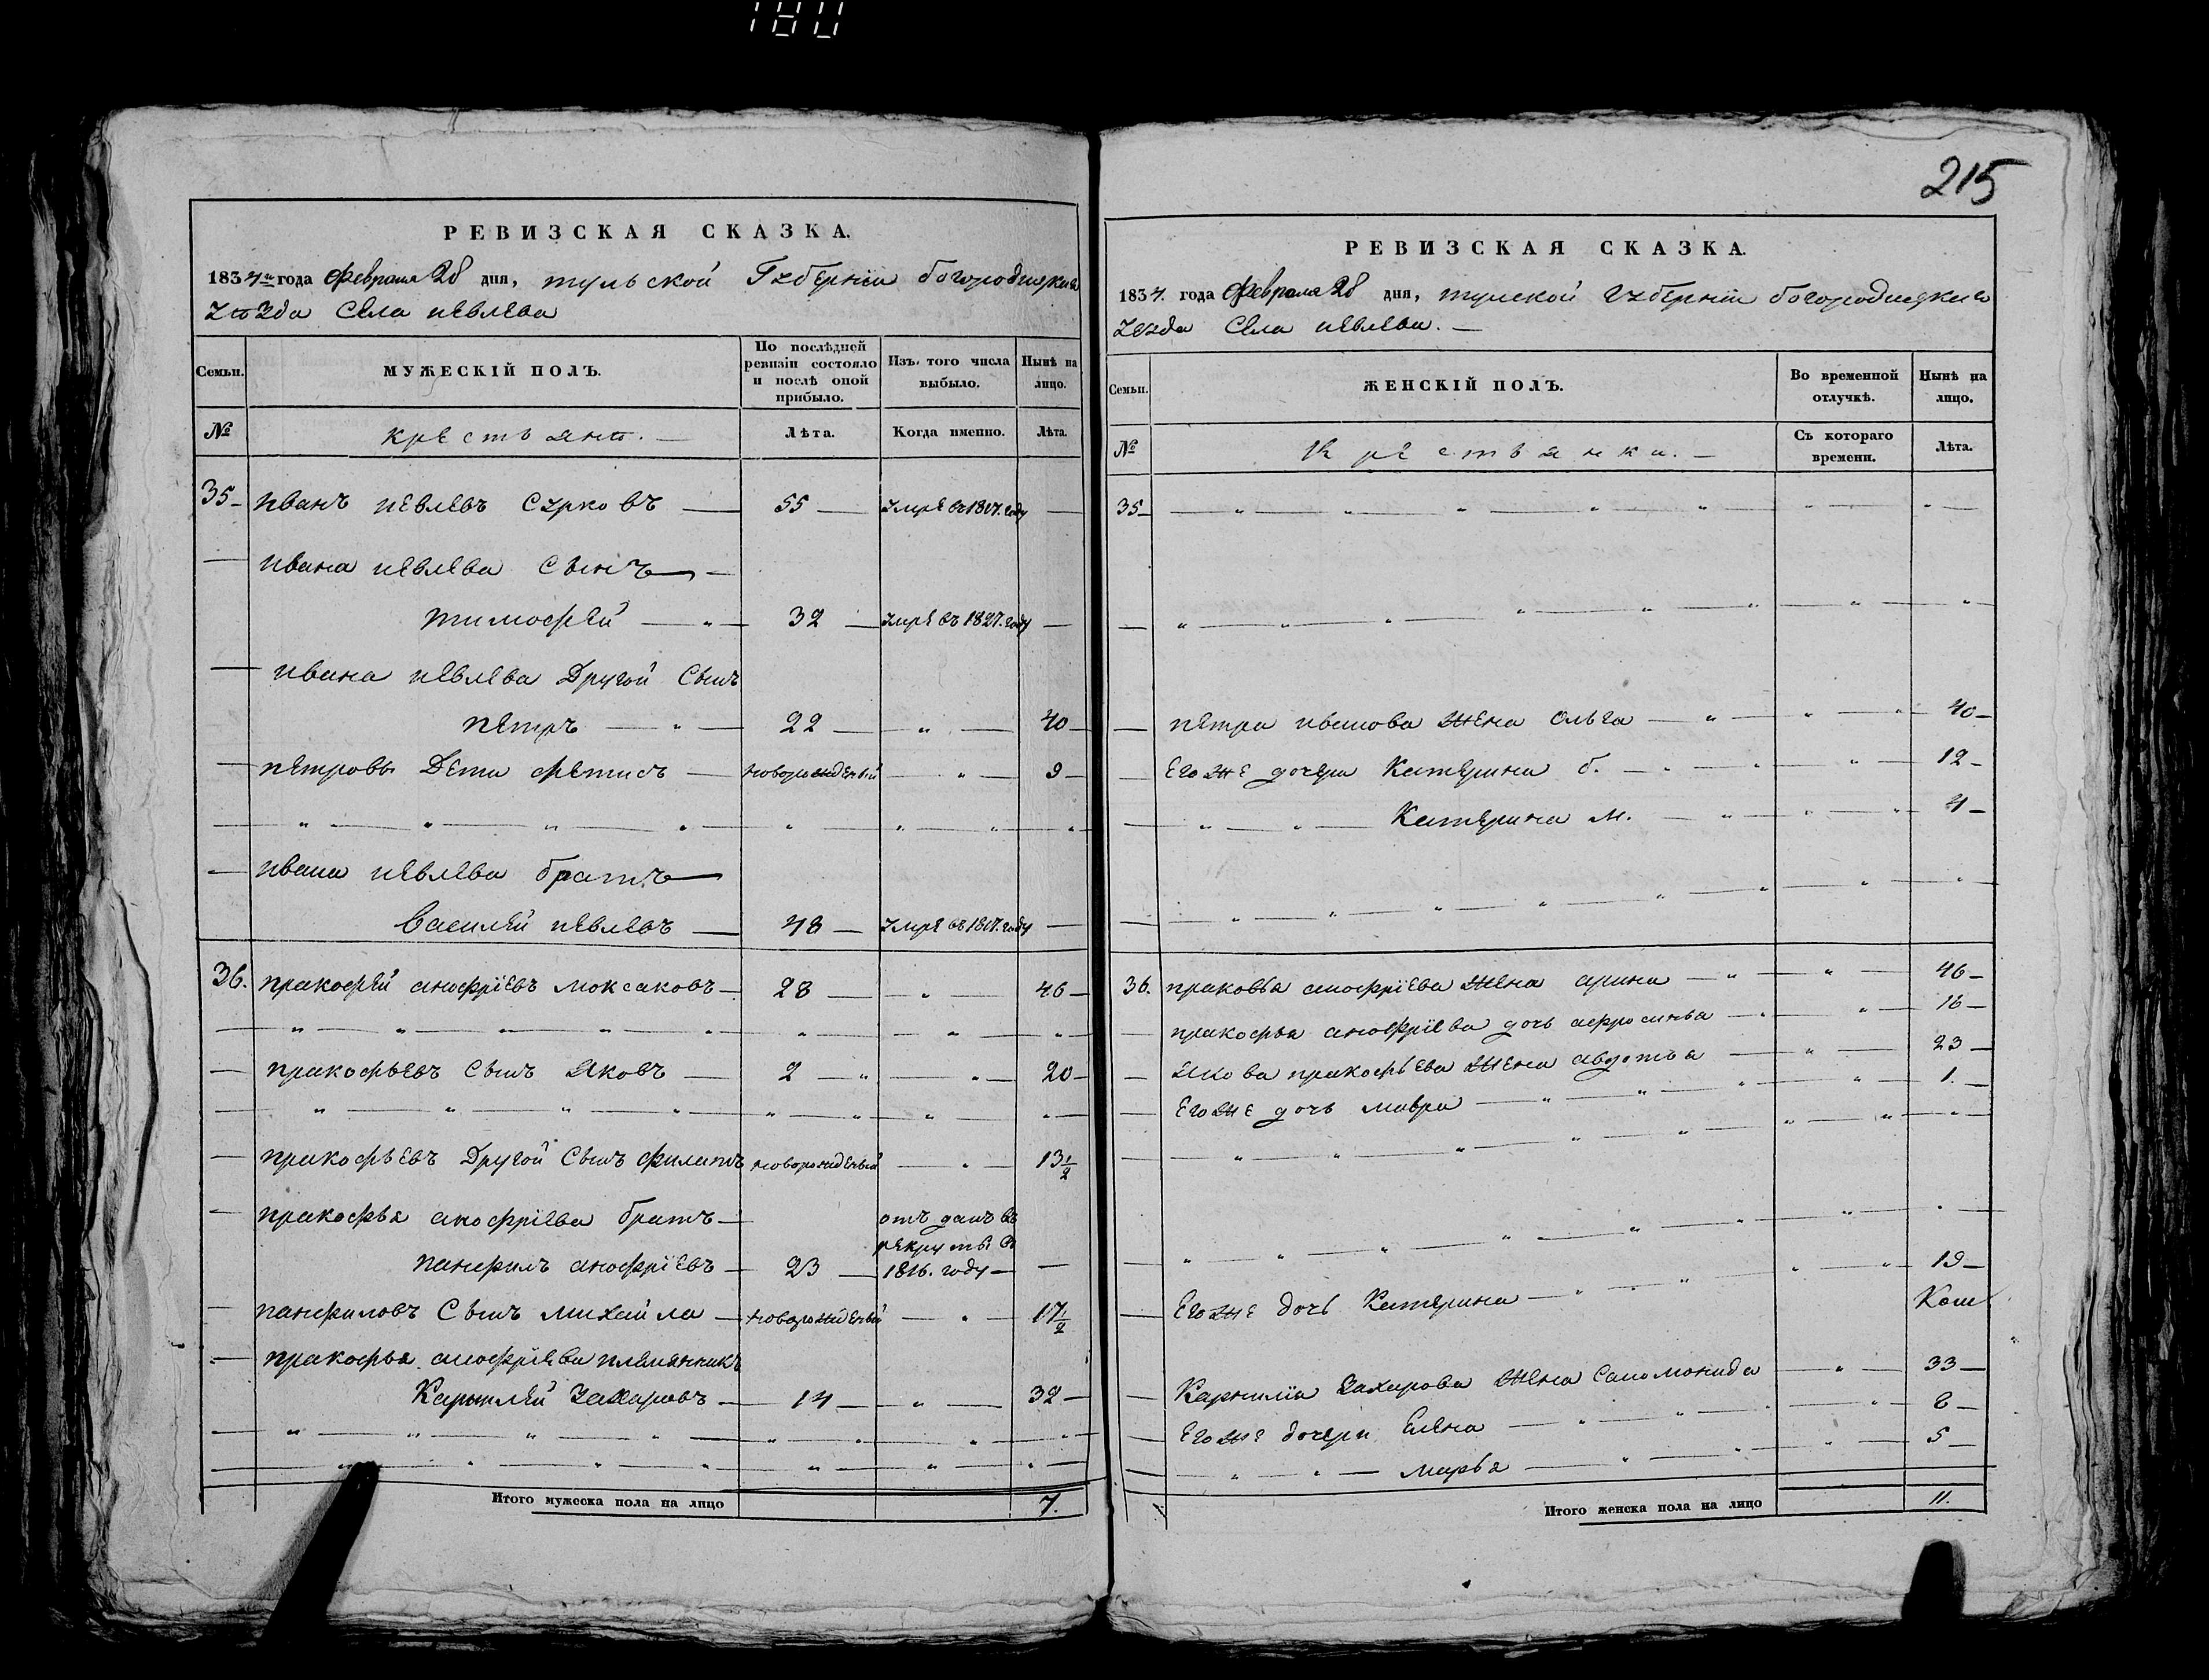 180
РЕВИЗСКАЯ СКАЗКА.
1834 года Февраля 28 дня, тульской Губерніи богородицкаго
уѣзда Села иевлева
Семьи.
МУЖЕСКІЙ ПОЛЪ.
По послѣдней ревизіи состояло и послѣ оной прибыло.
Изъ того числа выбыло.
Нынѣ на лицо.
№ крестьянъ. Лѣта. Когда именно. Лѣта.
35 иванъ иевлевъ Сурковъ 55 умре въ 1817. году
ивана иевлева Сынъ
тимофей 32 умре въ 1827. году
ивана иевлева Другой Сынъ
петръ 22 40
петровы Дети фетисъ новорожденый 9
ивана иевлева братъ
Василей иевлевъ 48 умре въ 1817. году
36. пракофей анофріевъ моксаковъ 28 46
пракофьевъ Сынъ Яковъ 2 20
пракофьевъ Другой Сынъ филипъ новорожденый 13 1/2
пракофья анофріева братъ отъ данъ въ
рекруты въ
панфилъ анофріевъ 23 1816. году
панфиловъ Сынъ михайла новорожденый 17 1/2
пракофья анофріева племянникъ
Карнилей Захаровъ 14 32
Итого мужеска пола на лицо 7.
215
РЕВИЗСКАЯ СКАЗКА.
1834. года Февраля 28 дня, тулской губерніи богородицкаго
уезда Села иевлева.
Семьи.
ЖЕНСКІЙ ПОЛЪ.
Во временной отлучкѣ.
Нынѣ на лицо.
№ Крестьянки. Съ котораго времени. Лѣта.
35
петра иванова жена Ольга 40
Его же дочери Катерина б. 12
Катерина м. 4
36. праковья анофріева жена арина 46
пракофья анофріева дочь афросинья 16
Якова пракофьева жена авдотья 23
Его же дочь мавра 1.
Его же дочь Катерина 19
Карнилія Захарова жена Саломонида 33
Его же дочери Елена 8
марья 5
Итого женска пола на лицо 11.